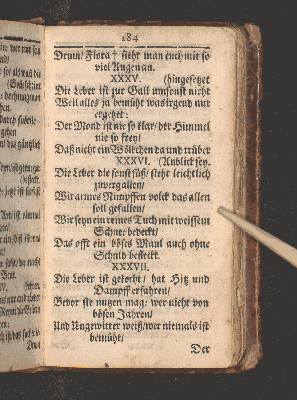 184
Drum/Flora† sieht man euch mit so
viel Augen an.
XXXV. (hingesetzet
Die Leber ist zur Gall umsonst nicht
Weil alles ja bemüht was irgend nur
ergetzet:
Der Mond ist nie so klar/der Himmel
nie so frey/
Daß nicht ein Wölckchen da und trüber
XXXVI. (Anblick sey.
Die Leber die sonst süß/ steht leichtlich
zuvergallen/
Wir armes Nimpffen volck das allen
soll gefallen/
Wir seyn ein reines Tuch mit weissem
Schnee bedeckt/
Das offt ein böses Maul auch ohne
Schuld befleckt.
XXXVII.
Die Leber ist gekocht/ hat Hitz und
Dampff erfahren/
Bevor sie nutzen mag: wer nicht von
bösen Jahren/
Und Ungewitter weiß/wer niemals ist
bemüht/
Der